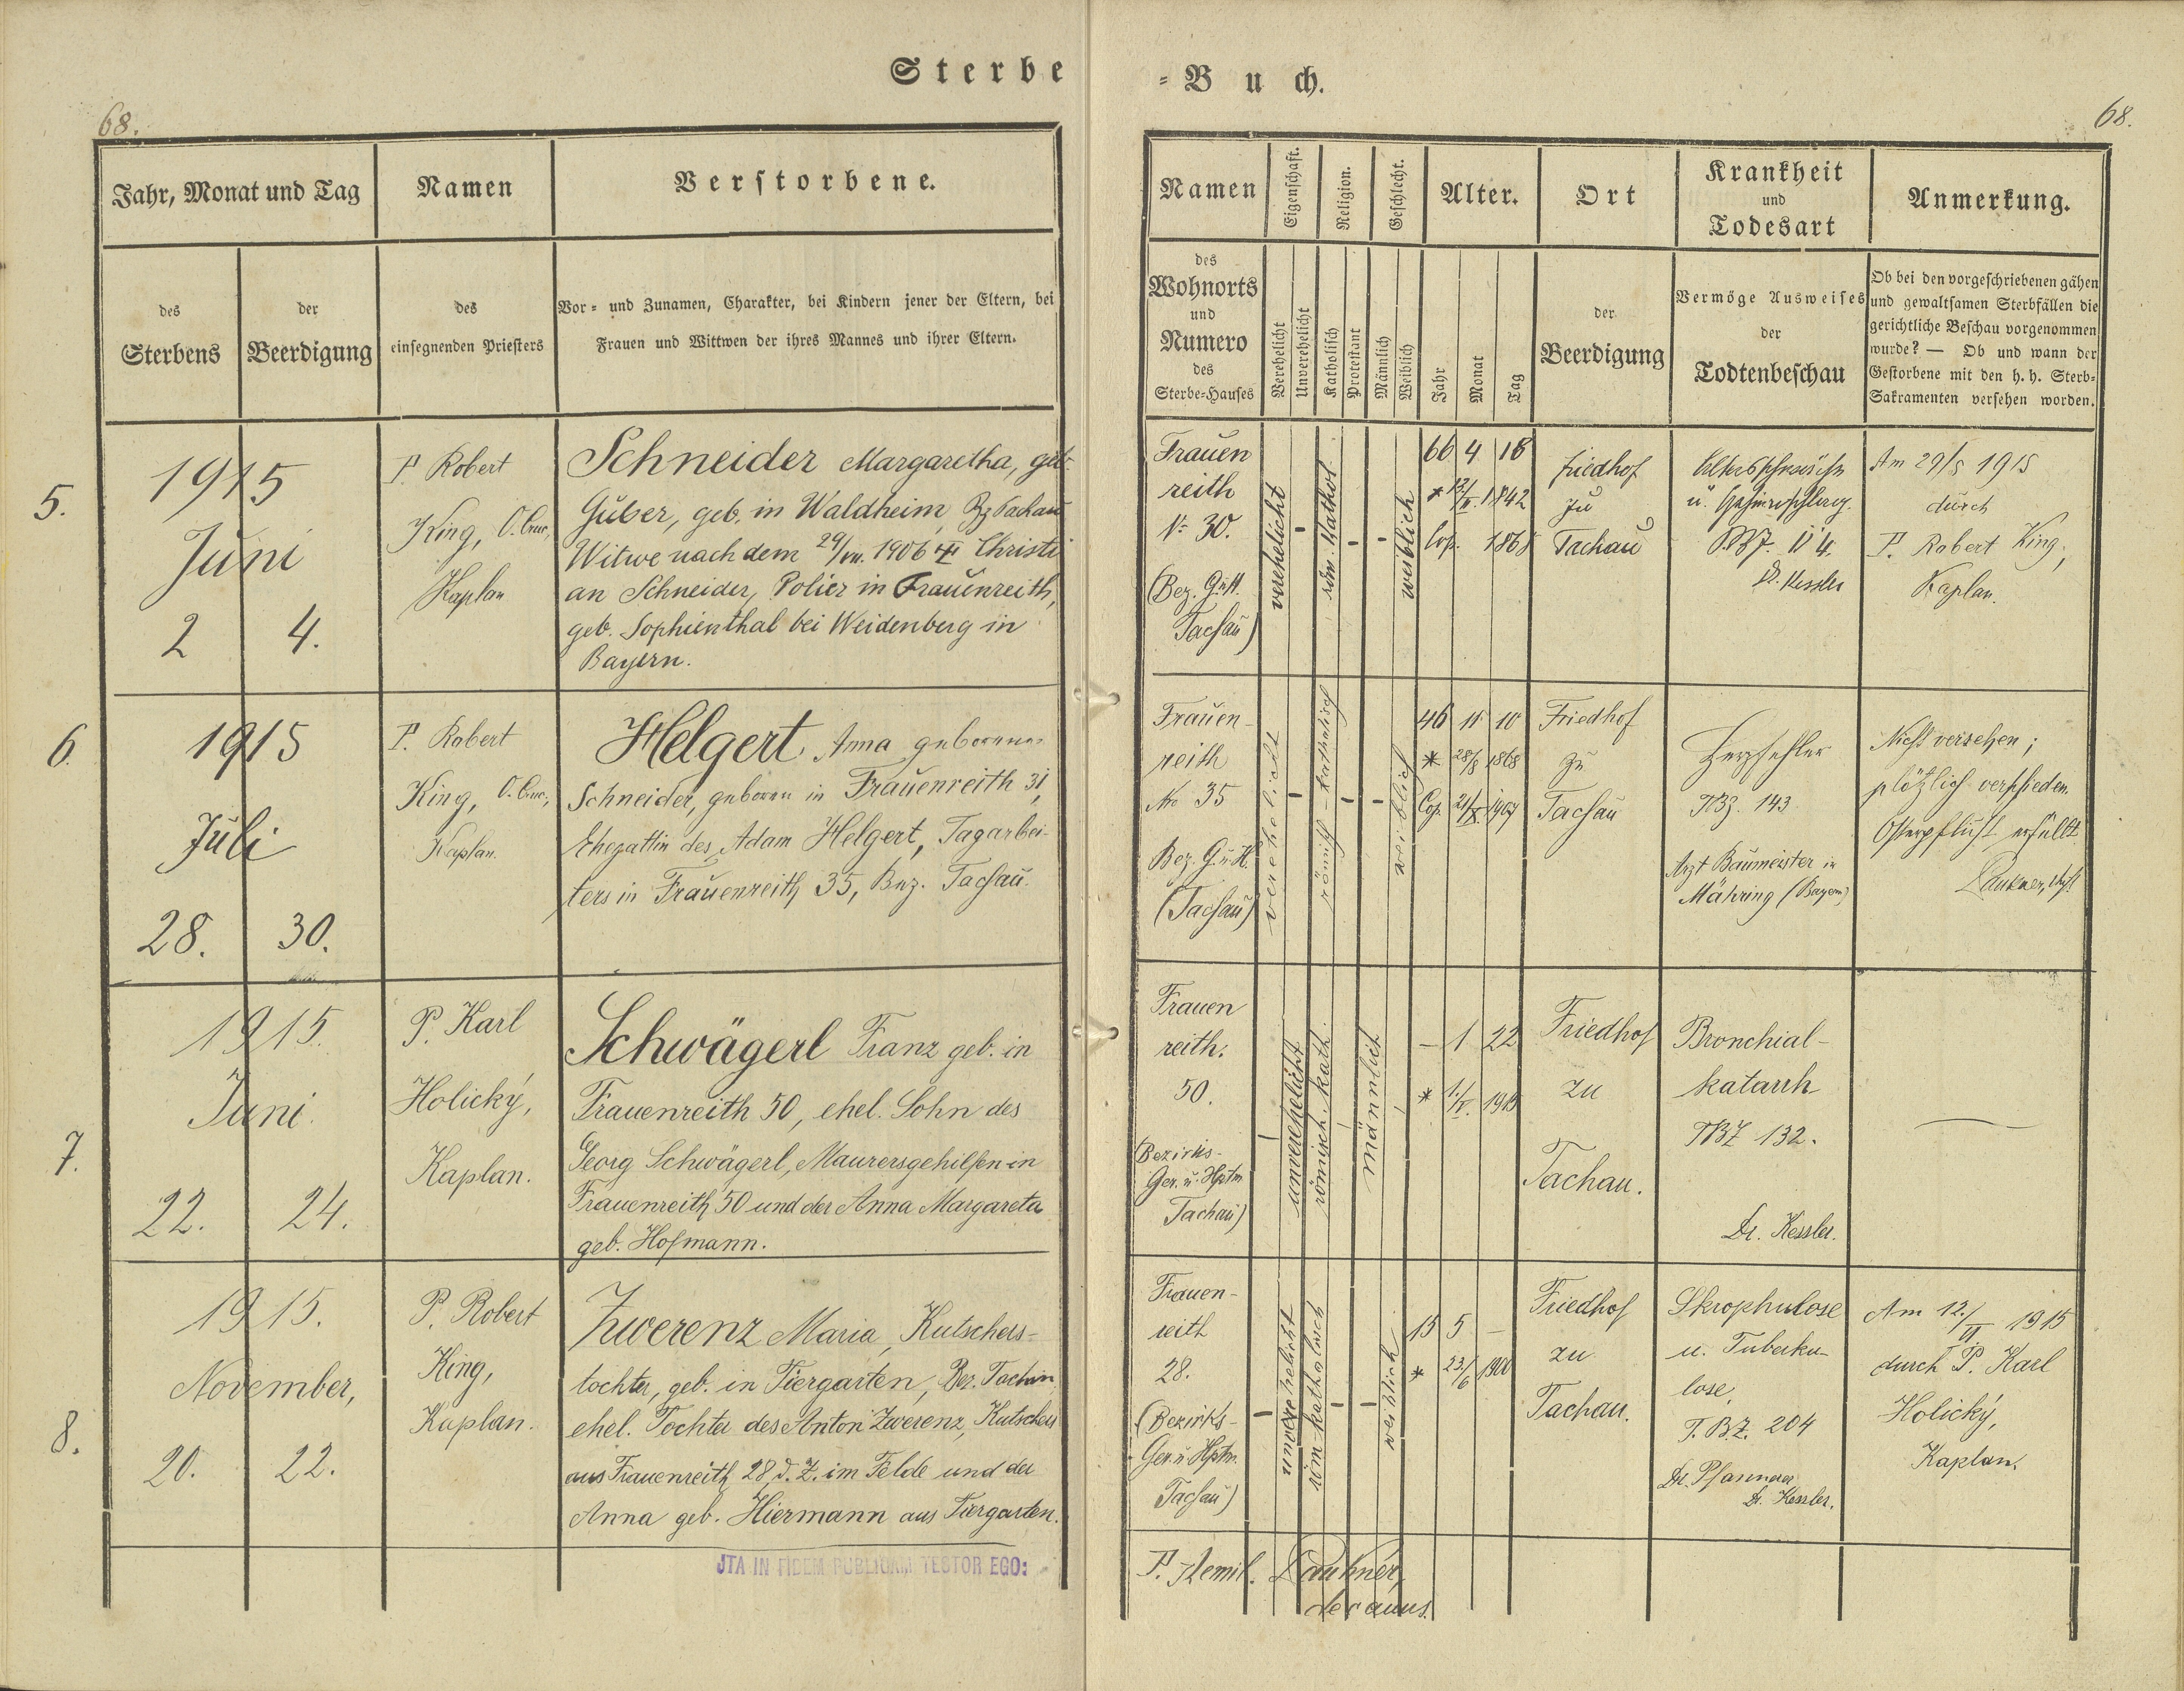 Sterbe
= Buch.
68.
68.
Jahr, Monat und Tag
Namen
Verstorbene.
des
Sterbens
der
Beerdigung
des
einsegnenden Priesters
Vor= und Zunamen, Charakter, bei Kindern jener der Eltern, bei
Frauen und Wittwen der ihres Mannes und ihrer Eltern.
Namen
Eigenschaft.
Religion.
Geschlecht.
Alter.
Ort
Krankheit
und
Todesart
Anmerkung.
des
Wohnorts
und
Numero
des
Sterbe=Hauses
Verehelicht
Unverehelicht
Katholisch
Protestant
Männlich
Weiblich
Jahr
Monat
Tag
der
Beerdigung
Vermöge Ausweises
der
Todtenbeschau
Ob bei den vorgeschriebenen gähen
und gewaltsamen Sterbfällen die
gerichtliche Beschau vorgenommen
wurde? — Ob und wann der
Gestorbene mit den h. h. Sterb=
Sakramenten versehen worden.
5.
1915
Juni
2 4.
P. Robert
King, O. Cruc.,
Kaplan
Schneider Margaretha, geb.
Guber, geb. in Waldheim, Bz Tachau
Witwe nach dem 29/VIII. 1906 Christi
an Schneider, Polier in Frauenreith,
geb. Sophienthal bei Weidenberg in
Bayern.
Frauen
reith
No 30.
(Bez. G.u.H.
Tachau)
verehelicht
–
röm. Kathol.
–
–
weiblich
66 4 18
* 1842
Cop.
Friedhof
zu
Tachau
Altersschwäche
u.
114.
Dr. Kessler
Am 29/5 1915
durch
P. Robert King,
Kaplan.
6.
1915
Juli
28. 30.
P. Robert
King, O. Cruc.,
Kaplan.
Helgert, Anna geborene
Schneider, geboren in Frauenreith 31,
Ehegattin des Adam Helgert, Tagarbei-
ters in Frauenreith 35, Bez. Tachau.
Frauen-
reith
No 35
Bez. G.u.H.
(Tachau)
verehelicht
–
römisch-katholisch
–
–
weiblich
46 11 10
* 28/8 1868
Cop. 21/X. 1907
Friedhof
zu
Tachau
Herzfehler
TBZ. 143
Arzt Baumeister in
Mähring (Bayern)
Nicht versehen;
plötzlich verschieden.
Osterpflicht erfüllt.
7.
1915.
Juni.
22. 24.
P. Karl
Holický,
Kaplan.
Schwägerl Franz geb. in
Frauenreith 50, ehel. Sohn des
Georg Schwägerl, Maurersgehilfen in
Frauenreith 50 und der Anna Margareta
geb. Hofmann.
Frauen
reith.
50.
(Bezirks-
Ger. u. Hptm.
Tachau)
–
unverehelicht
römisch. kath.
männlich
– 1 22
* 1./V. 1915
Friedhof
zu
Tachau.
Bronchial-
katarrh
TBZ 132.
Dr. Kessler.
—
8.
1915.
November,
20. 22.
P. Robert
King,
Kaplan.
Zwerenz Maria, Kutschers-
tochter, geb. in Tiergarten, Bez. Tachau,
ehel. Tochter des Anton Zwerenz, Kutschers
aus Frauenreith 28 d. Z. im Felde und der
Anna geb. Hiermann aus Tiergarten.
Frauen-
reith
28.
(Bezirks-
Ger. u. Hptm.
Tachau)
–
unverehelicht
röm-katholisch
–
–
weiblich
15 5 –
* 23./6 1900
Friedhof
zu
Tachau.
Skrophulose
u. Tuberku-
lose.
T.BZ. 204
Dr. Pfannerer
Dr. Kessler.
Am 12./VI. 1915
durch P. Karl
Holický,
Kaplan.
JTA IN FIDEM PUBLICAM TESTOR EGO:
P. Aemil. Laukner,
decanus.